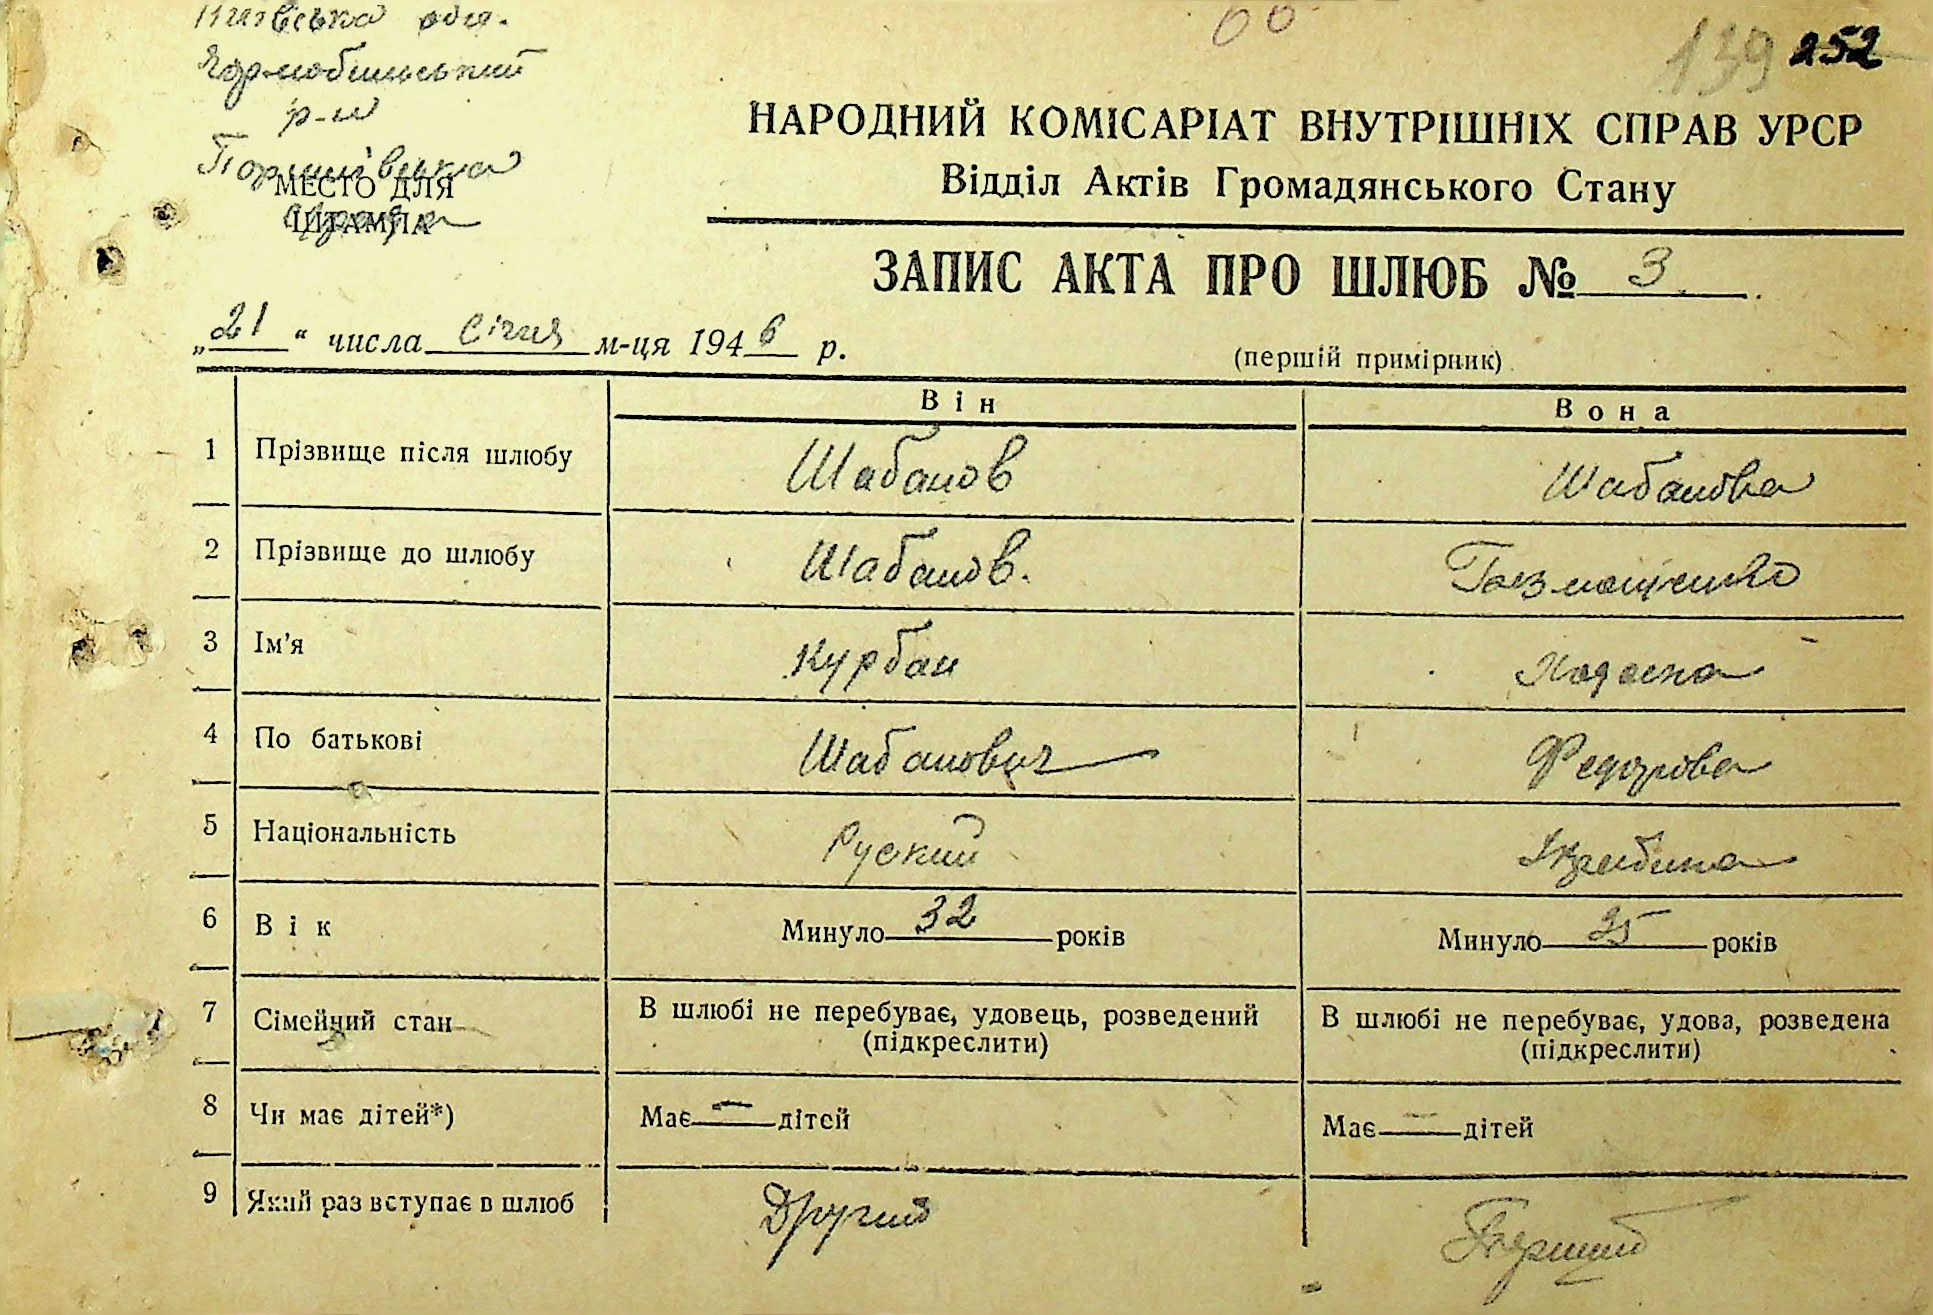 Київська обл.
60
139 252
Чорнобильський
р-н
НАРОДНИЙ КОМІСАРІАТ ВНУТРІШНІХ СПРАВ УРСР
МЕСТО ДЛЯ
ШТАМПА
Відділ Актів Громадянського Стану
ЗАПИС АКТА ПРО ШЛЮБ № 3
„21“ числа Січня м-ця 1946 р.
(першій примірник)
Він Вона
1 Прізвище після шлюбу Шабанов Шабанова
2 Прізвище до шлюбу Шабанов.
3 Ім'я Курбан
4 По батькові Шабанович Федорова
5 Національність Руский
6 Вік Минуло 32 років Минуло 35 років
7 Сімейний стан В шлюбі не перебуває, удовець, розведений В шлюбі не перебуває, удова, розведена
(підкреслити) (підкреслити)
8 Чи має дітей*) Має — дітей Має — дітей
9 Який раз вступає в шлюб Другий Перший